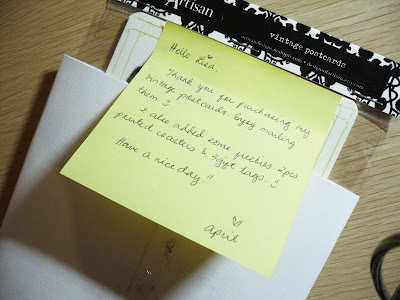 Artisan
vintage postcards
Hello Liza,
Thank you for purchasing my
vintage postcards. Enjoy mailing
them :)
I also added some freebies. 2pcs.
printed coasters & 3 gift tags. :)
Have a nice day!!
april